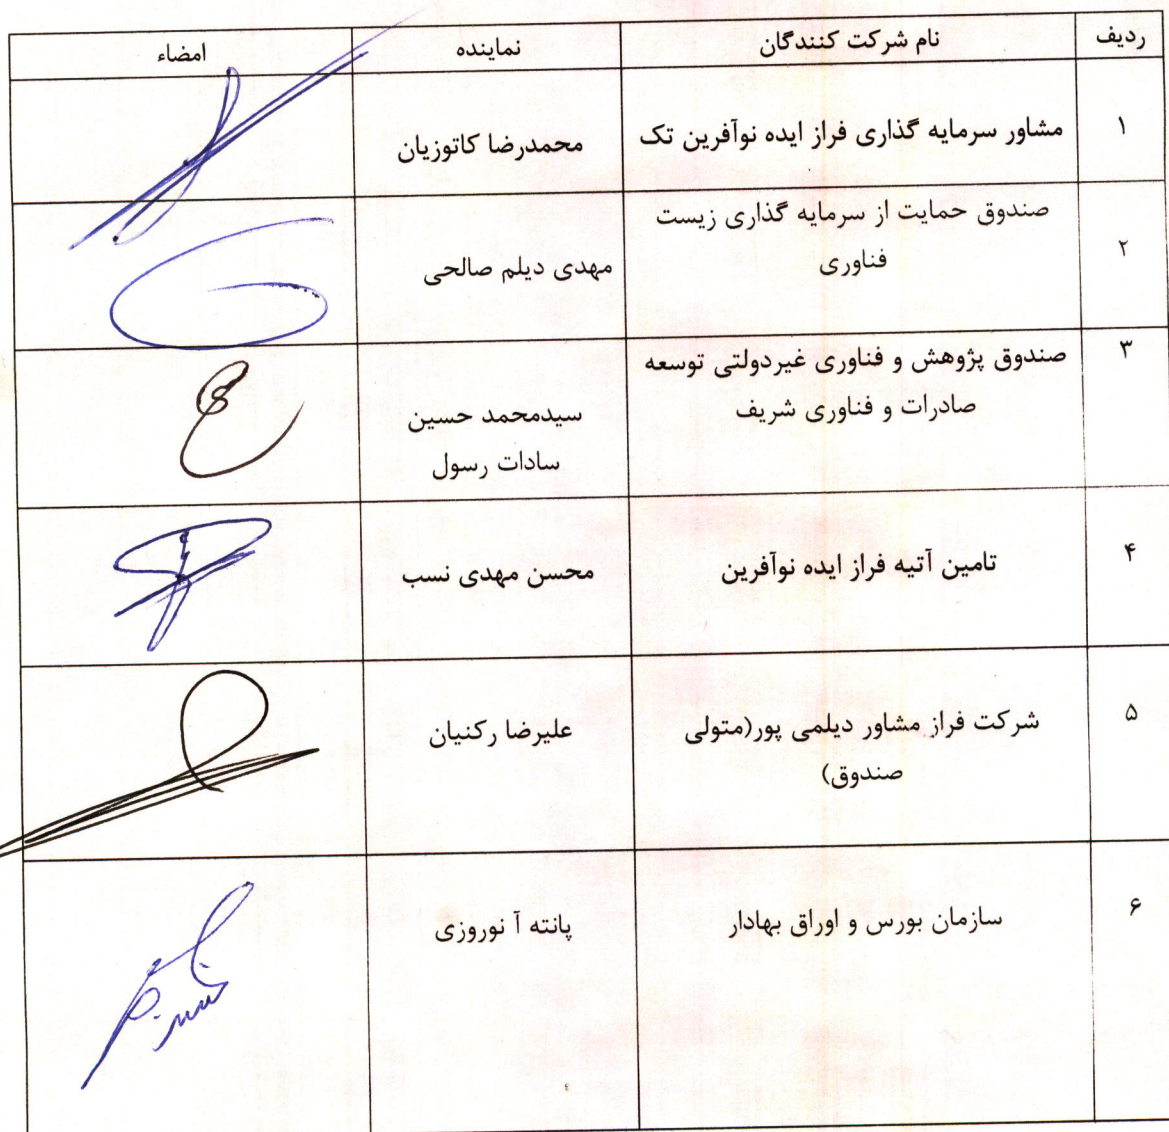 ردیف نام شرکت کنندگان نماینده امضاء
۱ مشاور سرمایه گذاری فراز ایده نوآفرین تک محمدرضا کاتوزیان
صندوق حمایت از سرمایه گذاری زیست
۲ فناوری مهدی دیلم صالحی
۳ صندوق پژوهش و فناوری غیردولتی توسعه
صادرات و فناوری شریف سیدمحمد حسین
سادات رسول
۴ تامین آتیه فراز ایده نوآفرین محسن مهدی نسب
۵ شرکت فراز مشاور دیلمی پور(متولی علیرضا رکنیان
صندوق)
۶ سازمان بورس و اوراق بهادار پانته آ نوروزی